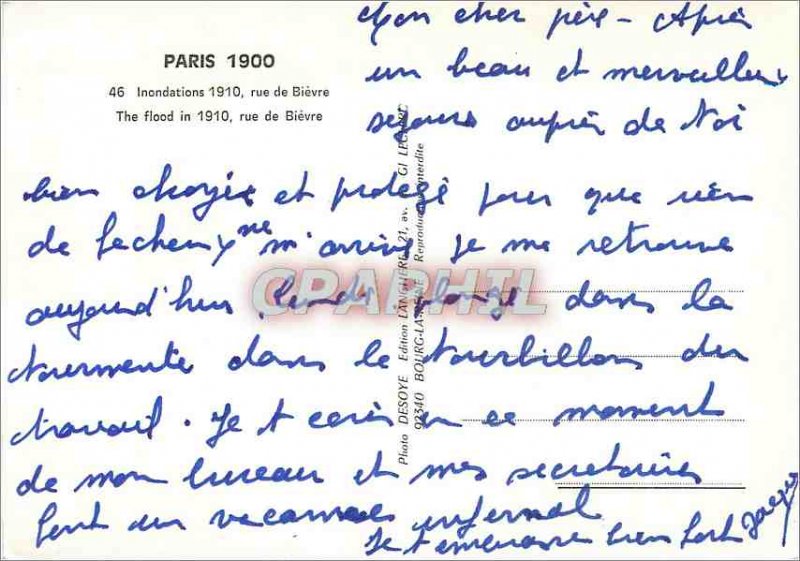 PARIS 1900
46 Inondations 1910, rue de Bièvre
The flood in 1910, rue de Bièvre
Mon cher père - Après
un beau et merveilleux
séjour auprès de toi
bien et protégé pour que rien
de facheux ne m'arrive je me retrouve
aujourd'hui lundi plongé dans la
tourmente dans le tourbillon du
travail. Je t ecris en ce moment
de mon bureau et mes secretaires
font un vacarme infernal
Je t'embrasse bien fort Jacques
Photo DESOYE Edition 21, av. LECLERC
92340 BOURG-LA-REINE Reproduction interdite
CPAPHIL